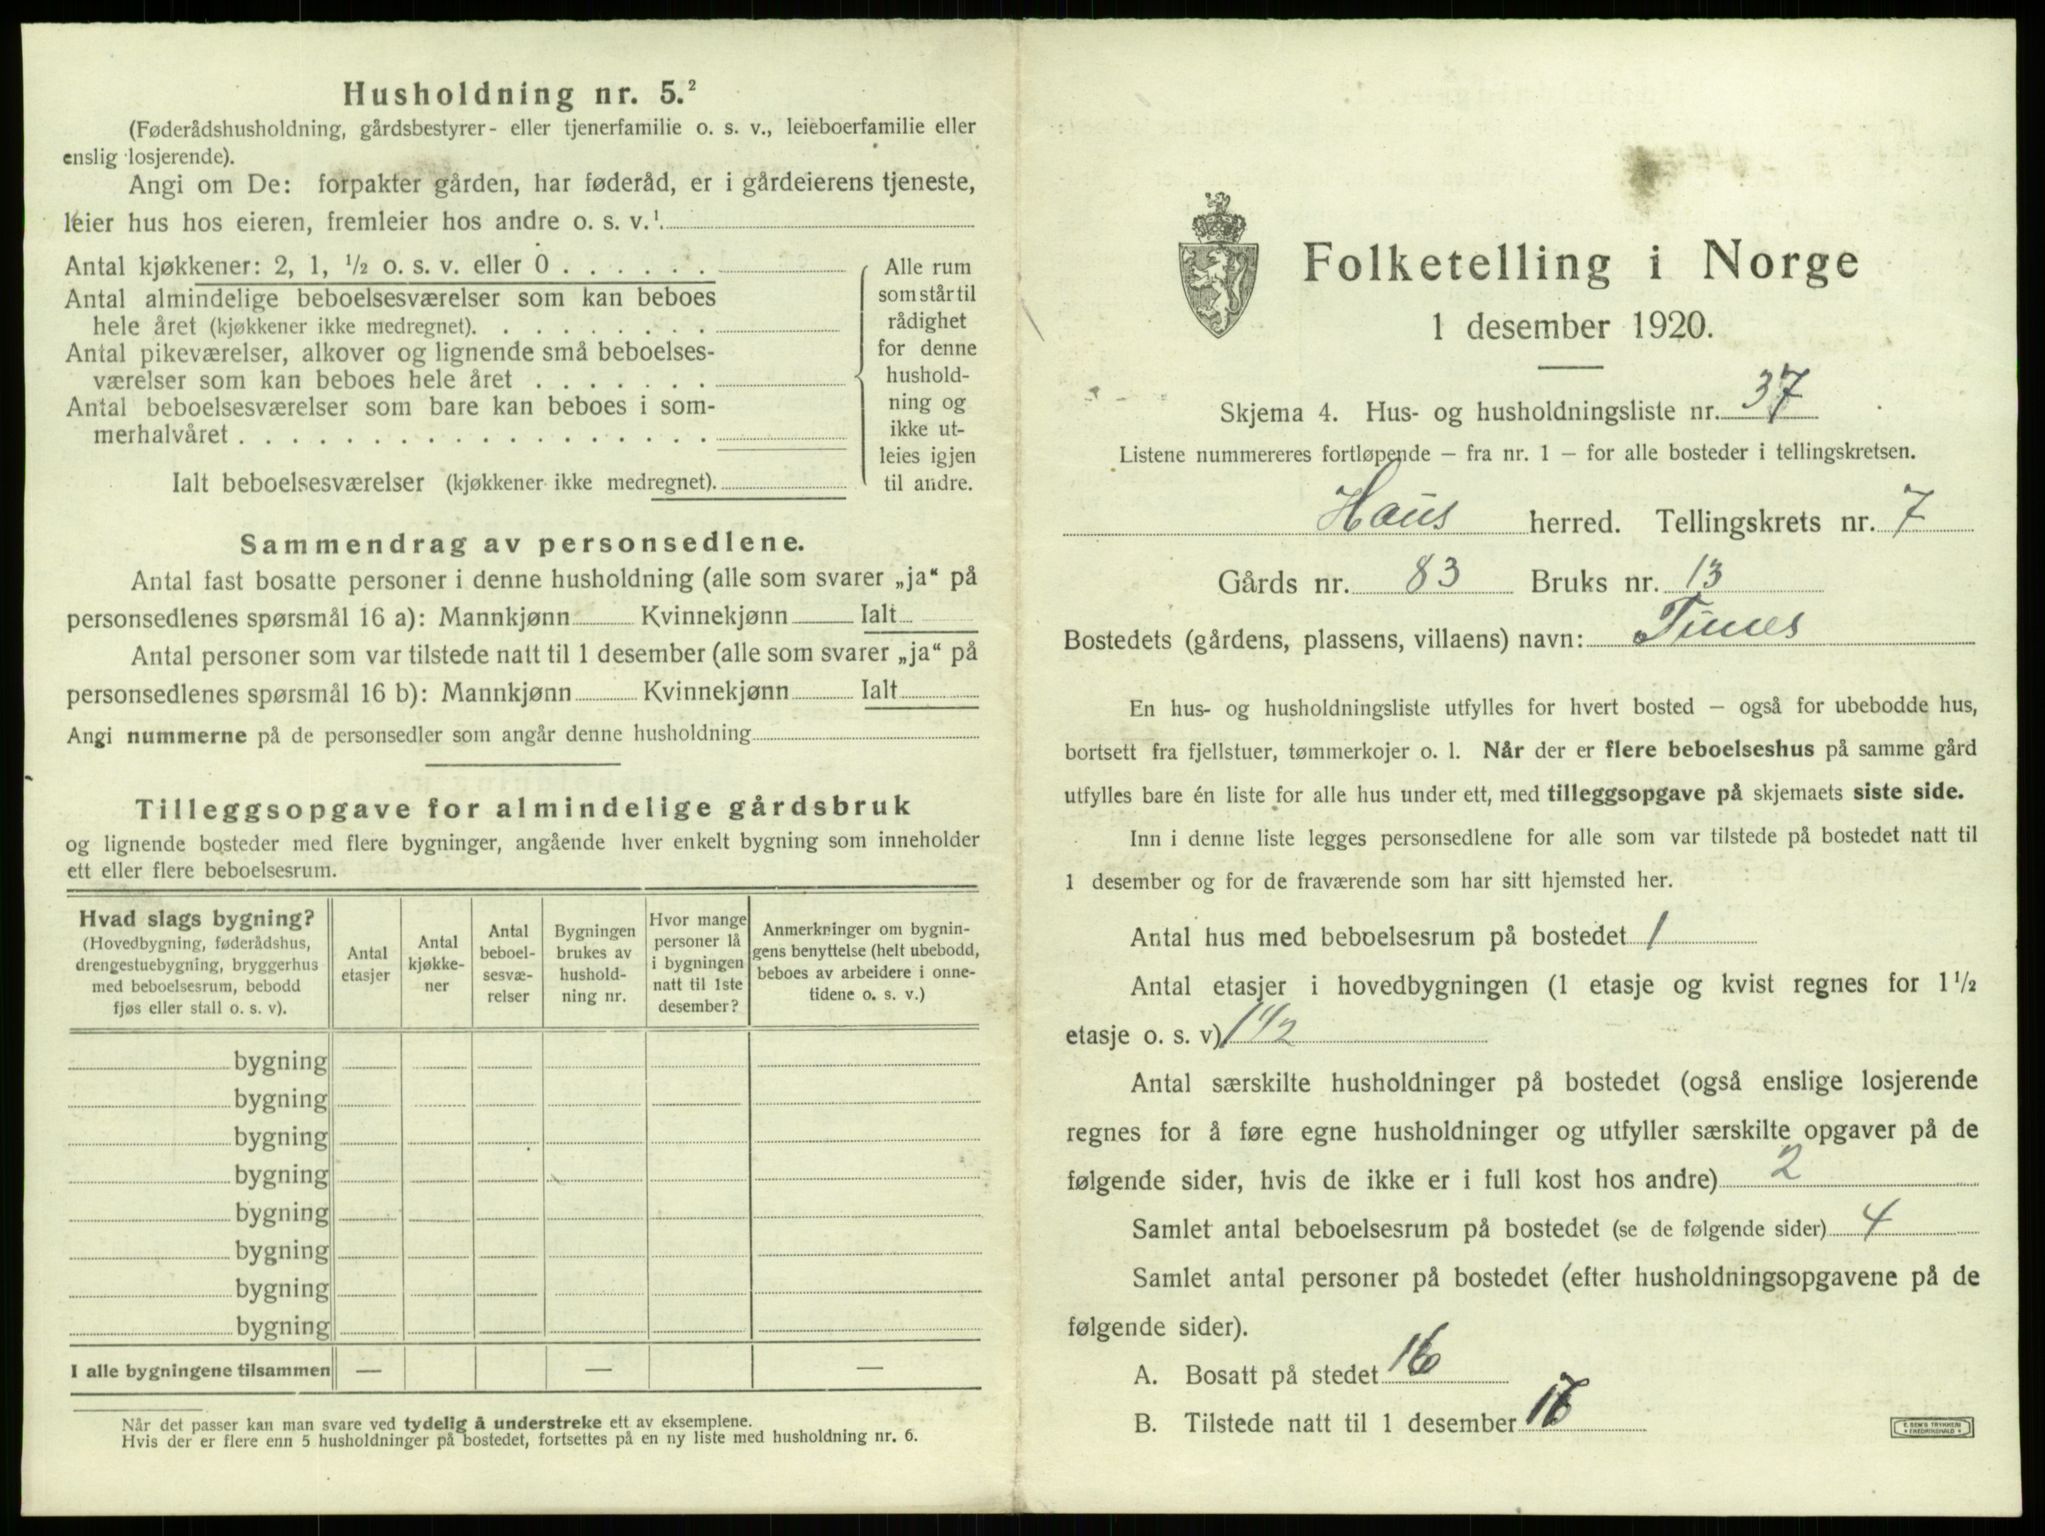 Husholdning nr. 5.²
(Føderådshusholdning, gårdsbestyrer- eller tjenerfamilie o. s. v., leieboerfamilie eller
enslig losjerende).
Angi om De: forpakter gården, har føderåd, er i gårdeierens tjeneste,
leier hus hos eieren, fremleier hos andre o. s. v.¹
Antal kjøkkener: 2, 1, ½ o. s. v. eller 0
Antal almindelige beboelsesværelser som kan beboes
hele året (kjøkkener ikke medregnet).
Antal pikeværelser, alkover og lignende små beboelses-
værelser som kan beboes hele året
Antal beboelsesværelser som bare kan beboes i som-
merhalvåret
Ialt beboelsesværelser (kjøkkener ikke medregnet).
Alle rum
som står til
rådighet
for denne
hushold-
ning og
ikke ut-
leies igjen
til andre.
Sammendrag av personsedlene.
Antal fast bosatte personer i denne husholdning (alle som svarer „ja“ på
personsedlenes spørsmål 16 a): Mannkjønn Kvinnekjønn Ialt
Antal personer som var tilstede natt til 1 desember (alle som svarer „ja“ på
personsedlenes spørsmål 16 b): Mannkjønn Kvinnekjønn Ialt
Angi nummerne på de personsedler som angår denne husholdning
Tilleggsopgave for almindelige gårdsbruk
og lignende bosteder med flere bygninger, angående hver enkelt bygning som inneholder
ett eller flere beboelsesrum.
Hvad slags bygning?
(Hovedbygning, føderådshus,
drengestuebygning, bryggerhus
med beboelsesrum, bebodd
fjøs eller stall o. s. v).
Antal
etasjer
Antal
kjøkke-
ner
Antal
beboel-
sesvæ-
relser
Bygningen
brukes av
hushold-
ning nr.
Hvor mange
personer lå
i bygningen
natt til 1ste
desember?
Anmerkninger om bygnin-
gens benyttelse (helt ubebodd,
beboes av arbeidere i onne-
tidene o. s. v.)
bygning
bygning
bygning
bygning
bygning
bygning
bygning
bygning
I alle bygningene tilsammen — — —
Når det passer kan man svare ved tydelig å understreke ett av eksemplene.
Hvis der er flere enn 5 husholdninger på bostedet, fortsettes på en ny liste med husholdning nr. 6.
Folketelling i Norge
1 desember 1920.
Skjema 4. Hus- og husholdningsliste nr. 37
Listene nummereres fortløpende – fra nr. 1 – for alle bosteder i tellingskretsen.
Haus herred. Tellingskrets nr. 7
Gårds nr. 83 Bruks nr. 13
Bostedets (gårdens, plassens, villaens) navn: Tunes
En hus- og husholdningsliste utfylles for hvert bosted – også for ubebodde hus,
bortsett fra fjellstuer, tømmerkojer o. l. Når der er flere beboelseshus på samme gård
utfylles bare én liste for alle hus under ett, med tilleggsopgave på skjemaets siste side.
Inn i denne liste legges personsedlene for alle som var tilstede på bostedet natt til
1 desember og for de fraværende som har sitt hjemsted her.
Antal hus med beboelsesrum på bostedet 1
Antal etasjer i hovedbygningen (1 etasje og kvist regnes for 1 ½
etasje o. s. v) 1 1/2
Antal særskilte husholdninger på bostedet (også enslige losjerende
regnes for å føre egne husholdninger og utfyller særskilte opgaver på de
følgende sider, hvis de ikke er i full kost hos andre) 2
Samlet antal beboelsesrum på bostedet (se de følgende sider) 4
Samlet antal personer på bostedet (efter husholdningsopgavene på de
følgende sider).
A. Bosatt på stedet 16
B. Tilstede natt til 1 desember
E. SEM'S TRYKKERI
FREDRIKSHALD